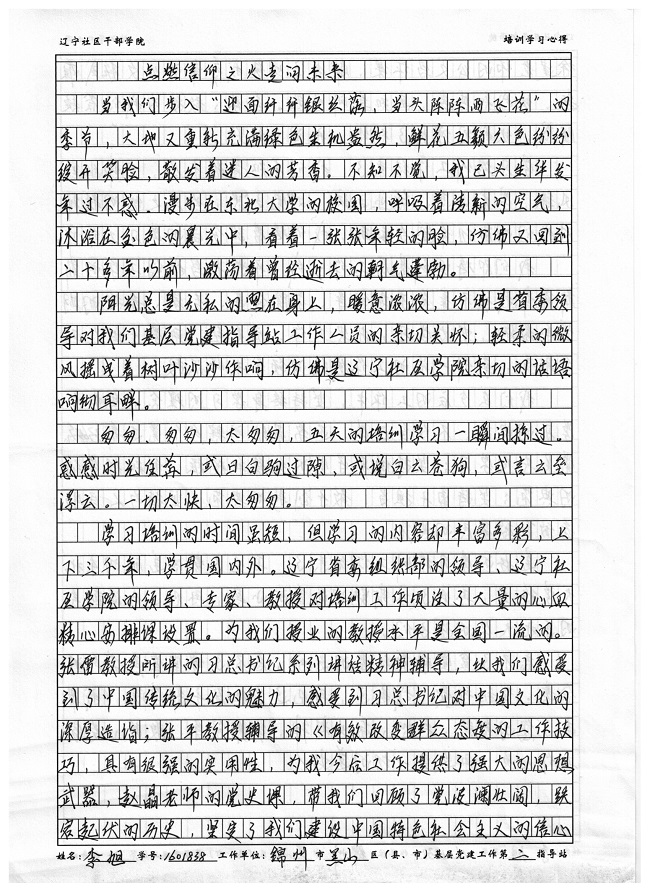 辽宁社区干部学院 培训学习心得
点燃信仰之火走向未来
当我们步入“迎面纤纤银丝落，当头陈陈雨飞花”的
季节，大地又重新充满绿色生机盎然，鲜花五颜六色纷纷
绽开笑脸，散发着迷人的芳香。不知不觉，我已头生华发
年过不惑．漫步在东北大学的校园，呼吸着清新的空气，
沐浴在金色的晨光中，看着一张张年轻的脸，仿佛又回到
二十多年以前，激荡着曾经逝去的朝气蓬勃。
阳光总是无私的照在身上，暖意浓浓，仿佛是省委领
导对我们基层党建指导站工作人员的亲切关怀；轻柔的微
风摇曳着树叶沙沙作响，仿佛是辽宁社区学院亲切的话语
响彻耳畔。
匆匆、匆匆，太匆匆，五天的培训学习一瞬间掠过。
感感时光荏苒，或曰白驹过隙，或说白云苍狗，或言云垒
浮云。一切太快，太匆匆。
学习培训的时间虽短，但学习的内容却丰富多彩，上
下三千年，学贯国内外。辽宁省委组织部的领导、辽宁社
区学院的领导、专家、教授对培训工作倾注了大量的心血
精心安排课设置。为我们授业的教授水平是全国一流的。
张雷教授所讲的习总书记系列讲话精神辅导，让我们感受
到了中国传统文化的魅力，感受到习总书记对中国文化的
深厚造诣；张平教授辅导的《有效改变群众态度的工作技
巧，具有很强的实用性，为我今后工作提供了强大的思想
武器，赵晶老师的党史课，带我们回顾了党波澜壮阔，跌
宕起伏的历史，坚定了我们建设中国特色社会主义的信心
姓名：李旭 学号：1601838 工作单位：锦州市黑山区（县、市）基层党建工作第二指导站